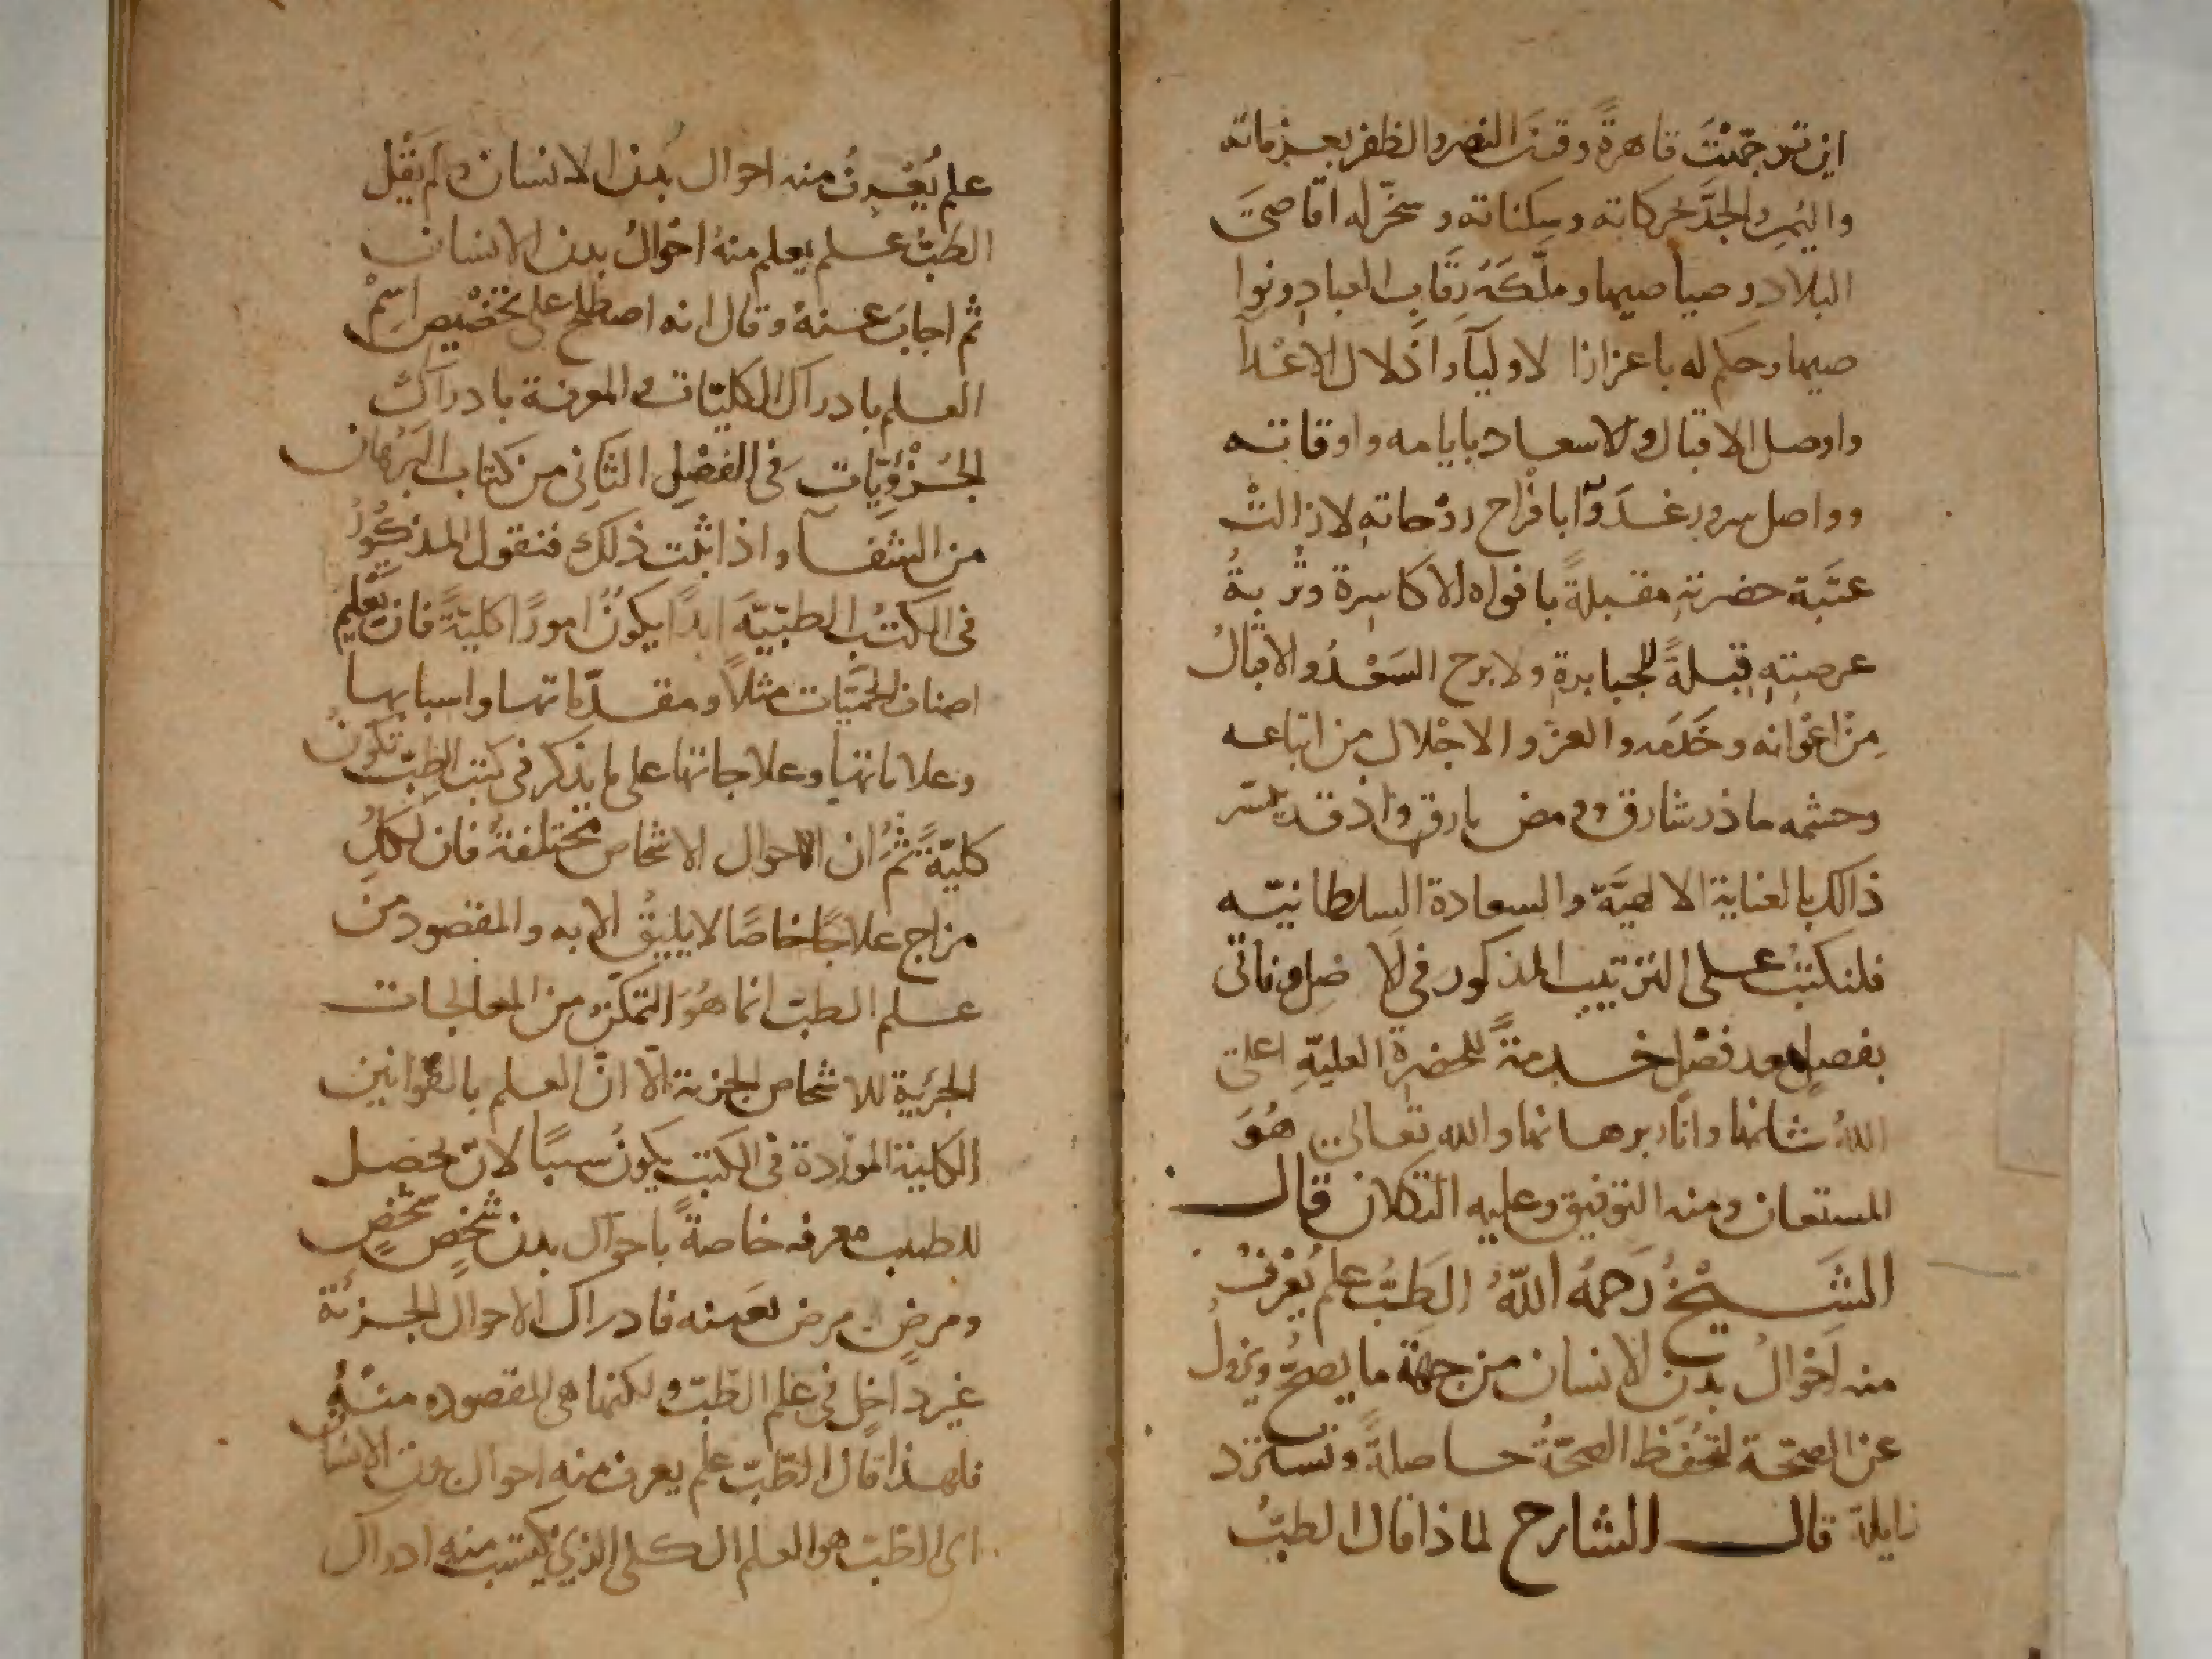 اين توجهت قاهرة وقرن النصر والظفر بعزماته
واليمن والجد بحركاته وسكناته وسخر له اقاصى
البلاد وصياصيها وملكه رقاب العباد ونوا
صيها وحكم له باعزاز الاوليآء واذلال الاعدآ
واوصل الاقبال والاسعاد بايامه واوقاته
وواصل سرور غدوّه بافراح روحاته لازالت
عتبة حضرته مقبلةً بافواه الاكاسرة وتربةُ
عرصته قبلةً للجبابرة ولابرح السعدُ والاقبالُ
من اعوانه وخدمه والعز والاجلال من اتباعه
وحشمه ماذر شارق وومض بارق واذ قد تيسّر
ذالك بالعناية الالهيّة والسعادة السلطانيّه
فلنكتب على الترتيب المذكور فى ونأتى
بفصل بعد فصل خدمةً للحضرة العليّهِ اعلى
اللهُ شانها وانار برهانها والله تعالى هُوَ
المستعان ومنه التوفيق وعليه التكلان قال
الشيخُ رَحمهُ اللّهُ الطبُّ علم يُعْرفُ
منه احوالُ بدن الانسان من جهة ما يصحُّ ويزولُ
عن الصحّة لتحفظ الصحّةُ حاصلةً وتسترد
زايلة قال الشارح لماذا قال الطبُّ
علم يُعْرفُ منه احوال بدن الانسان ولم يَقُل
الطبُّ علم يعلم منهُ احوالُ بدن الانسان
ثم اجابَ عنهُ وقال انه اصطلح على تخصيص اسم
العلم بادراك الكليّات والمعرفة بادراك
الجُزؤيّات فى الفصل الثانى من كتاب البرهان
من الشفآ واذا ثبت ذلك فنقول المذكورُ
فى الكتب الطبّيّة ابدًا يكونُ امورًا كليّةً فان تعليم
اصناف الحمّيات مثلاً ومقدّماتها واسبابها
وعلاماتها وعلاجاتها على ما يذكر فى كتب الطبّ تكونُ
كليّةً ثم ان الاحوال الاشخاص مختلفةٌ فان لكلِّ
مزاج علاجًا خاصًا لا يليقُ الا به والمقصود من
علم الطبّ انما هُوَ التمكّن من المعالجات
الجزئية للاشخاص الجزية الّا انّ العلم بالقوانين
الكلية الموردة فى الكتب يكونُ سببًا لان يحصل
للطبيب معرفه خاصةً باحوال بدن شخصٍ شخصٍ
ومرضٍ مرض بعينه فادراك الاحوال الجزئة
غير داخل فى علم الطبّ ولكنها هى المقصوده منهُ
فلهذا قال الطبّ علم يعرف منه احوال بدن الانسان
اى الطبّ هو العلم الكلى الذى يكتسب منه ادراك